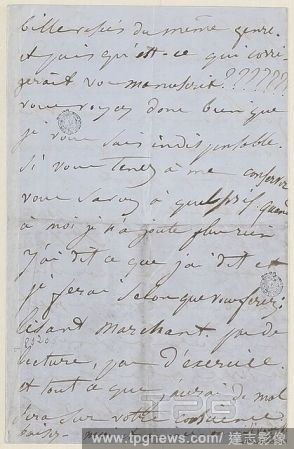 billevesées du même genre.
et puis qu'est-ce qui corri-
gerait vos manuscrit ???????
vous voyez donc bien que
je vous suis indispensable.
Si vous tenez à me conserver
vous savez à quel prix. quand
à moi je n'ajoute plus rien
j'ai dit ce que j'ai dit et
je ferai selon que vous ferez;
lisant marchant. pas de
lecture, pas d'exercice.
et tout ce que j'aurai de mal
sera sur votre conscience
TPG
www.tpgnews.com / 達志影像